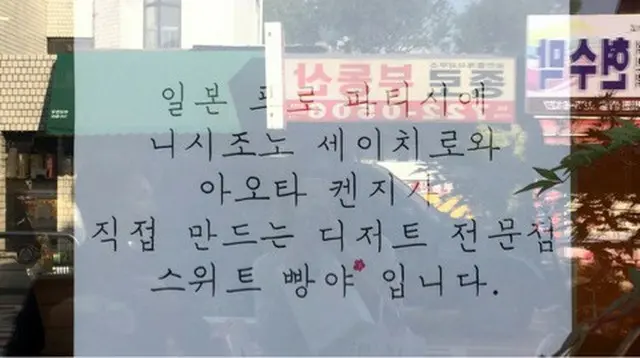 일본 프로 파티시에
니시조노 세이치로와
아오타 켄지가
직접 만드는 디저트 전문점
스위트 빵야 입니다.
부동산
현수막